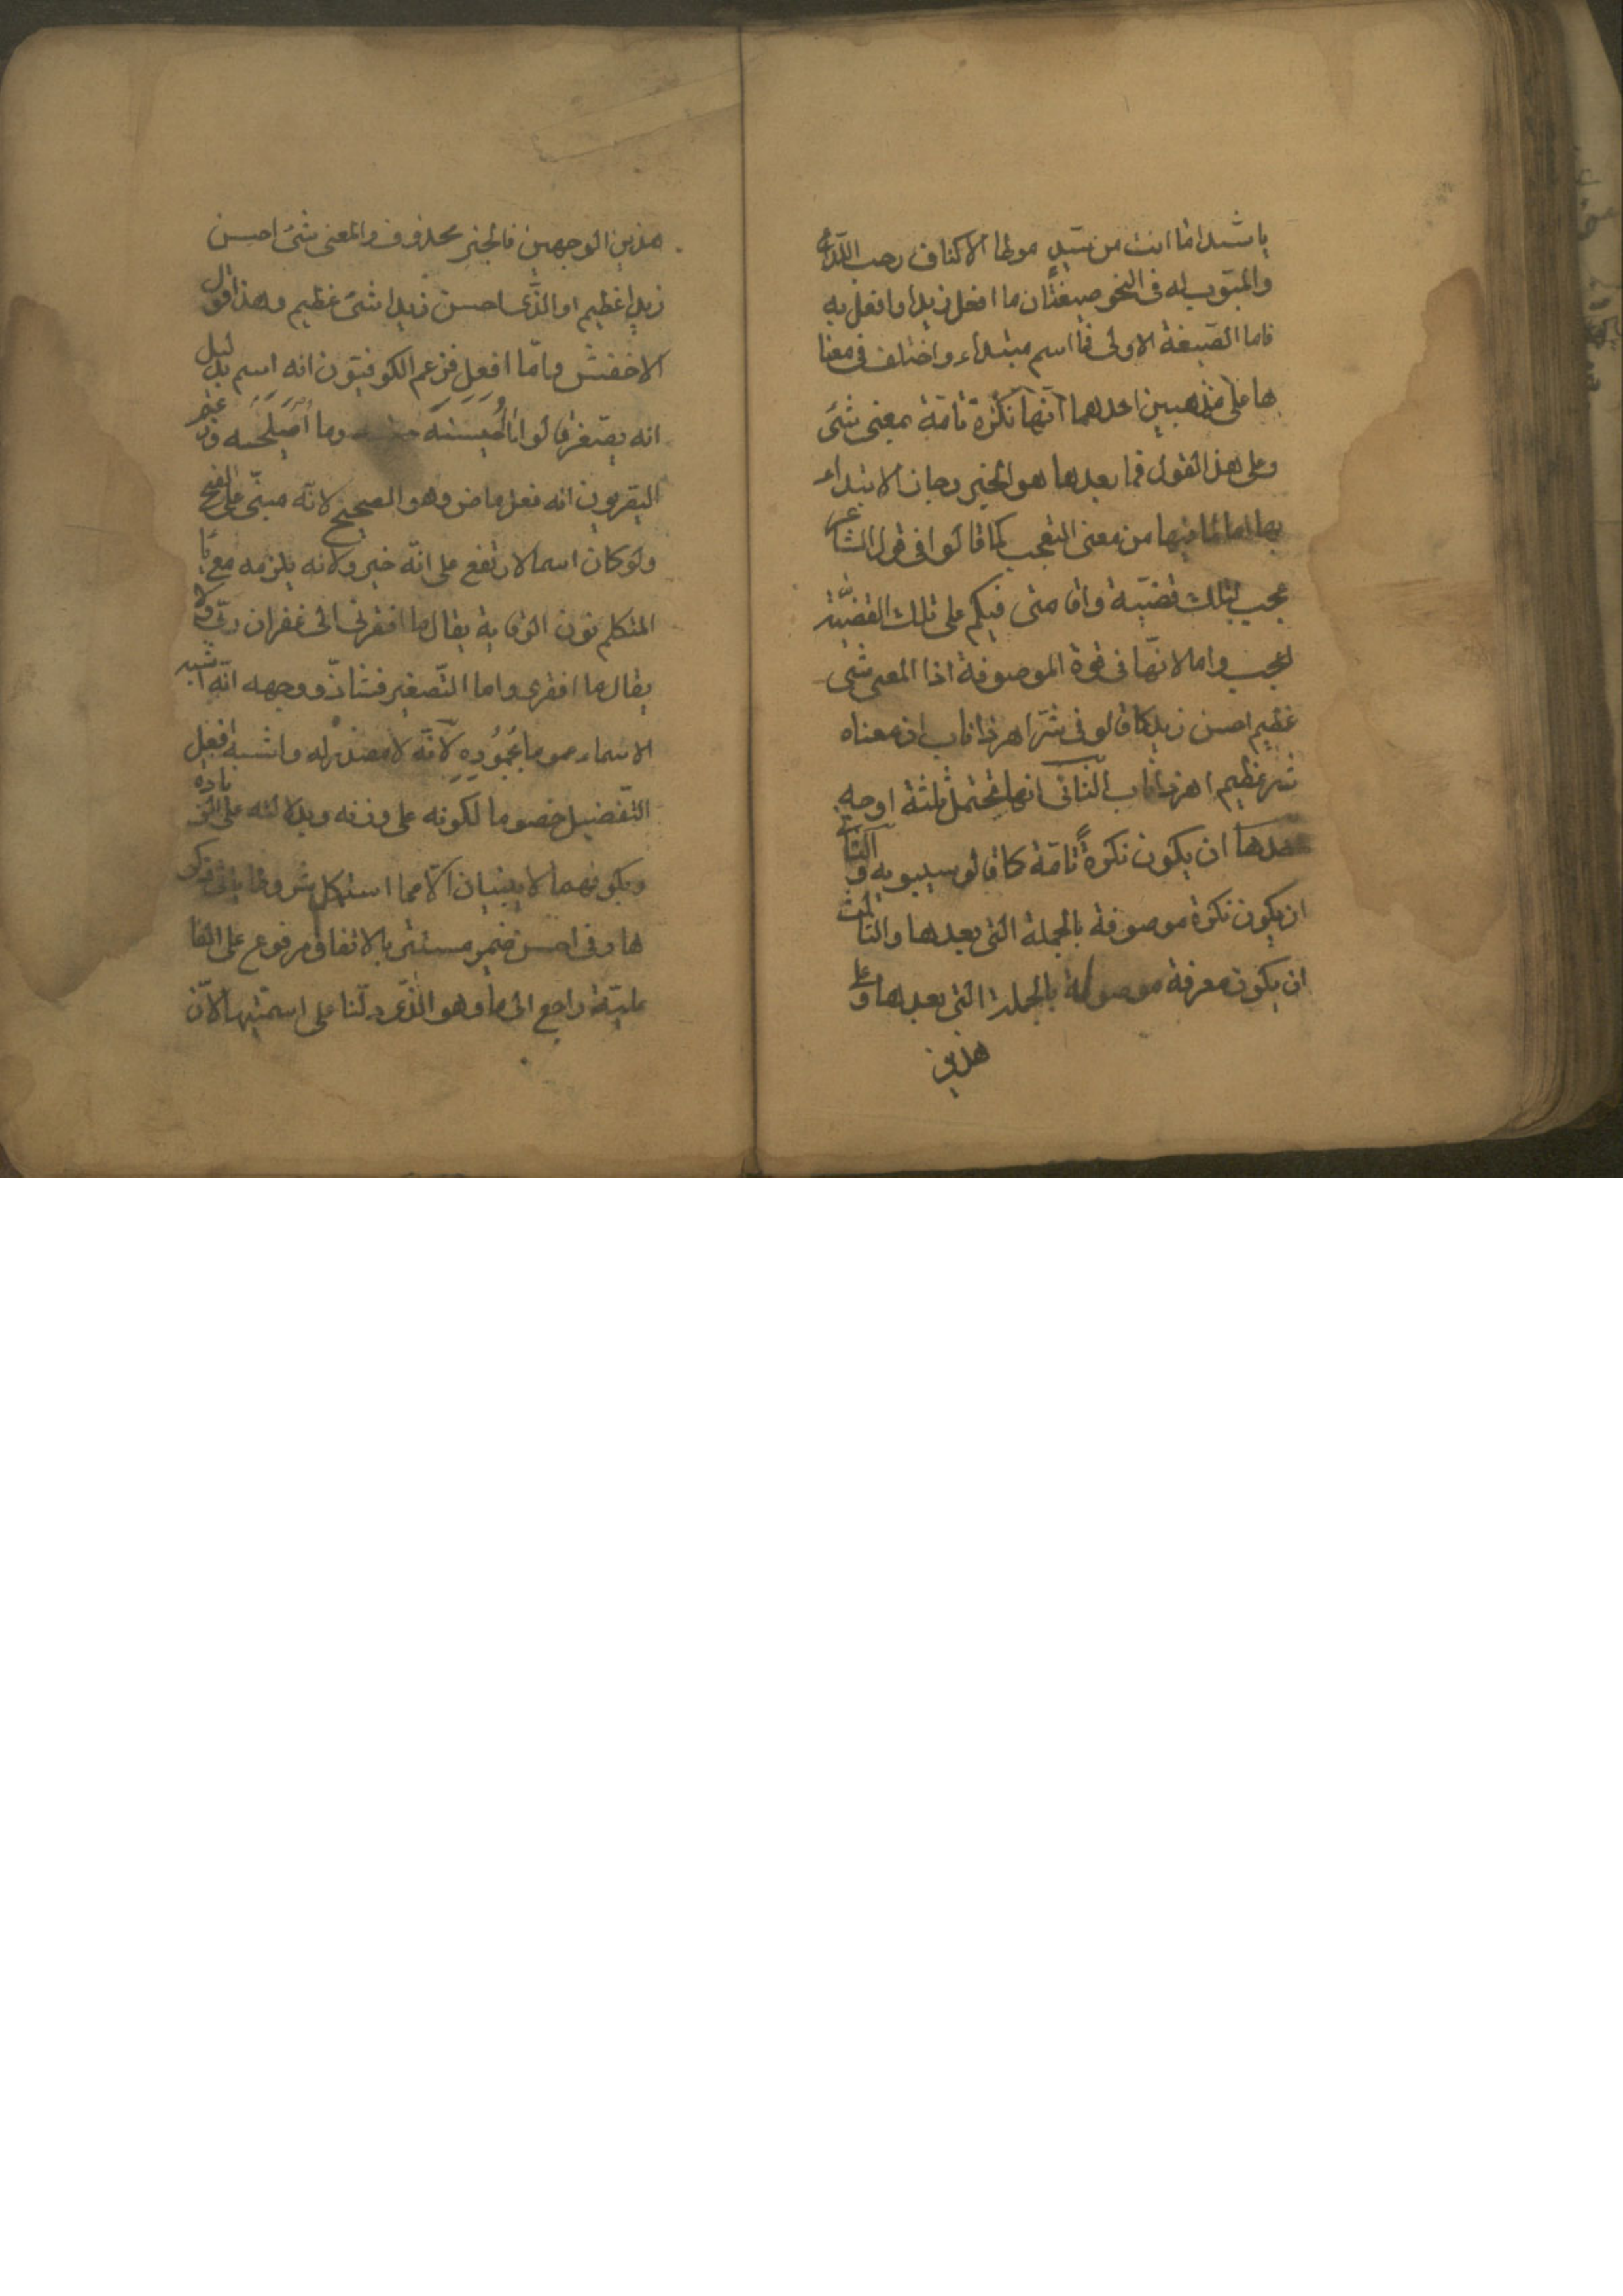 يا سيدا ما انت من سيد موطا الاكناف رحب الذراع
والمبوب له في النحو صيغتان ما افعل زيدا وافعل به
فاما الصيغة الاولى فما اسم مبتداء واختلف في معنا
ها على مذهبين احدهما انها نكرة تامة بمعنى شئ
وعلى هذا القول فما بعدها هو الخبر وجاز الابتداء
بها اما لما فيها من معنى التعجب كما قالوا في قول الشاعر
عجب لتلك قضية واقامتى فيكم على تلك القضية
اعجب واما لانها في قوة الموصوفة اذا المعنى شئ
عظيم احسن زيد كما قالو في شر اهر ذا ناب ان معناه
شر عظيم اهر ذا ناب الثاني انها تحتمل ثلثة اوجه
احدها ان يكون نكرةً تامة كما قالو سيبويه والثانى
ان يكون نكرة موصوفة بالجملة التى بعدها والثالث
ان يكون معرفة موصولة بالجملة التى بعدها وعلى
هذين
هذين الوجهين فالخبر محذوف والمعنى شئ احسن
زيدا عظيم او الذى احسن زيدا شئ عظيم وهذا قول
الاخفش واما افعل فزعم الكوفيون انه اسم بدليل
انه يصغر قالوا ما اُحيسنه وما اُميلحه وزعم
البصريون انه فعل ماض وهو الصحيح لانه مبنى على الفتح
ولو كان اسما لارتفع على انه خبر ولانه يلزمه مع يا
المتكلم نون الوقاية يقال ما افقرنى الى غفران ربى ولا
يقال ما افقرى واما التصغير فشاذ ووجهه انه اشبه
الاسماء عموما بجموده لانه لا مصدر له واشبه افعل
التفضيل خصوصا لكونه على وزنه وبدلالته على الزيادة
وبكونهما لا يبنيان الا مما استكمل شروطا ياتى ذكر
ها وفى احسن ضمير مستتر بالاتفاق مرفوع على الفا
علية راجع الى ما وهو الذى دلنا على اسميتها لان